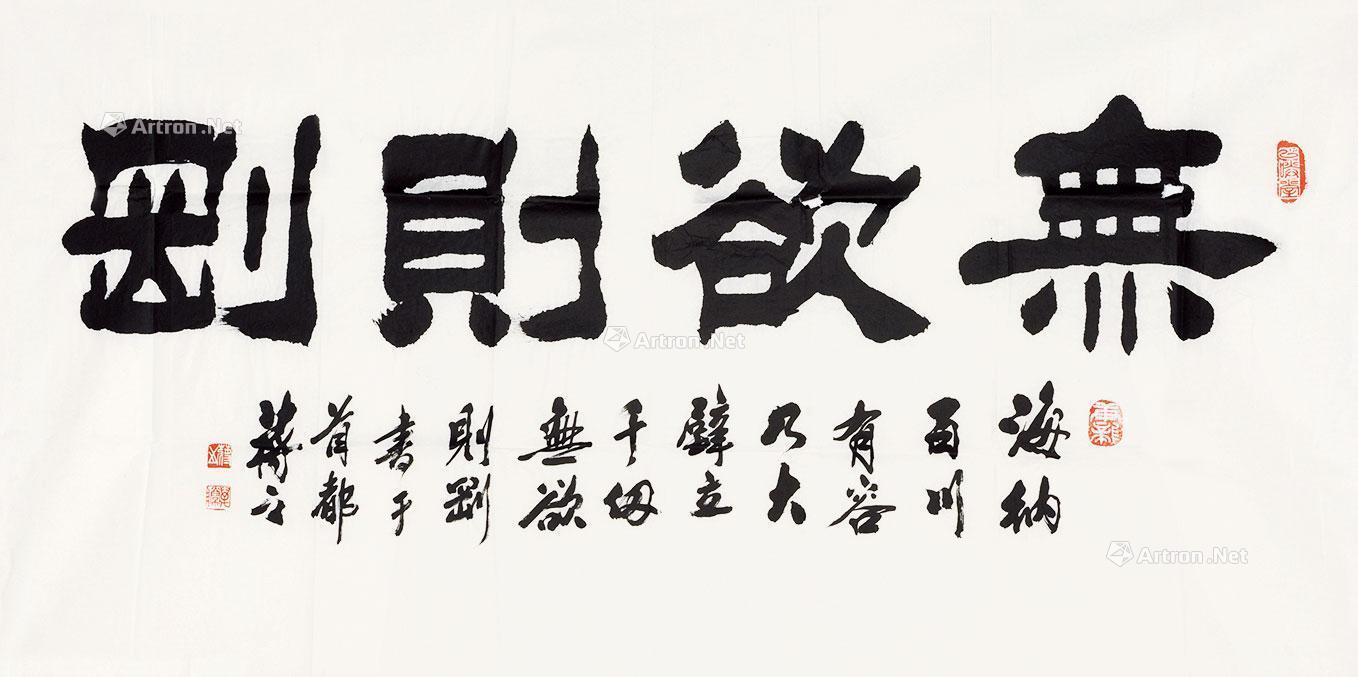 無欲則剛
海納
百川
有容
乃大
壁立
千仞
無欲
則剛
書于
首都
Artron.Net
Artron.Net
Artron.Net